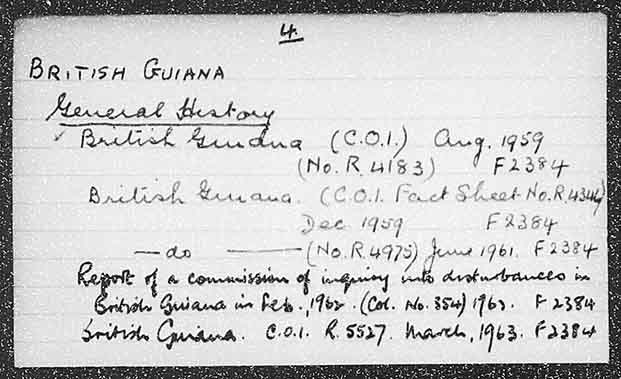 4.
BRITISH GUIANA
General History
✓ British Guiana (C.O.I.) Aug. 1959
(No. R. 4183) F2384
British Guiana. (C.O.I. Fact Sheet No. R.4344)
Dec 1959 F2384
— do —— (No. R.4975) June 1961. F2384
Report of a commission of inquiry into disturbances in
British Guiana in Feb., 1962. (Col. No. 354) 1962. F2384
British Guiana. C.O.I. R. 5527. March, 1963. F2384